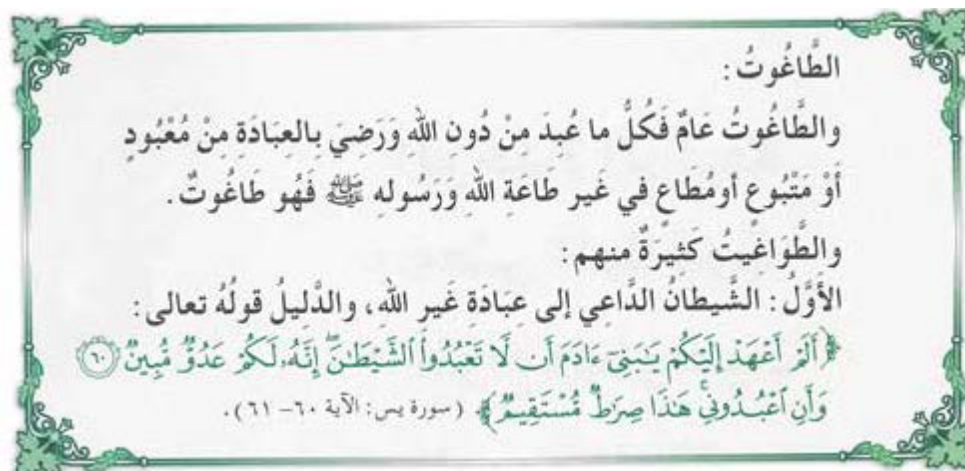 الطَّاغُوتُ :
والطَّاغُوتُ عَامٌ فَكُلُّ ما عُبِدَ مِنْ دُونِ اللهِ وَرَضِيَ بِالعِبَادَةِ مِنْ مُعْبُودٍ
أَوْ مَتْبُوعٍ أومُطَاعٍ في غَيرِ طَاعَةِ اللهِ وَرَسُولِهِ ﷺ فَهُو طَاغُوتٌ .
والطَّوَاغِيتُ كَثِيرَةٌ منهم :
الأَوَّلُ : الشَّيطانُ الدَّاعِي إلى عِبَادَةِ غَيرِ اللهِ ، والدَّلِيلُ قولُهُ تعالى :
﴿ أَلَمْ أَعْهَدْ إِلَيْكُمْ يَٰبَنِىٓ ءَادَمَ أَن لَّا تَعْبُدُوا۟ ٱلشَّيْطَٰنَ ۖ إِنَّهُۥ لَكُمْ عَدُوٌّ مُّبِينٌ ﴿٦٠﴾
وَأَنِ ٱعْبُدُونِى ۚ هَٰذَا صِرَٰطٌ مُّسْتَقِيمٌ ﴾ ( سورة يس : الآية ٦٠ - ٦١ ) .